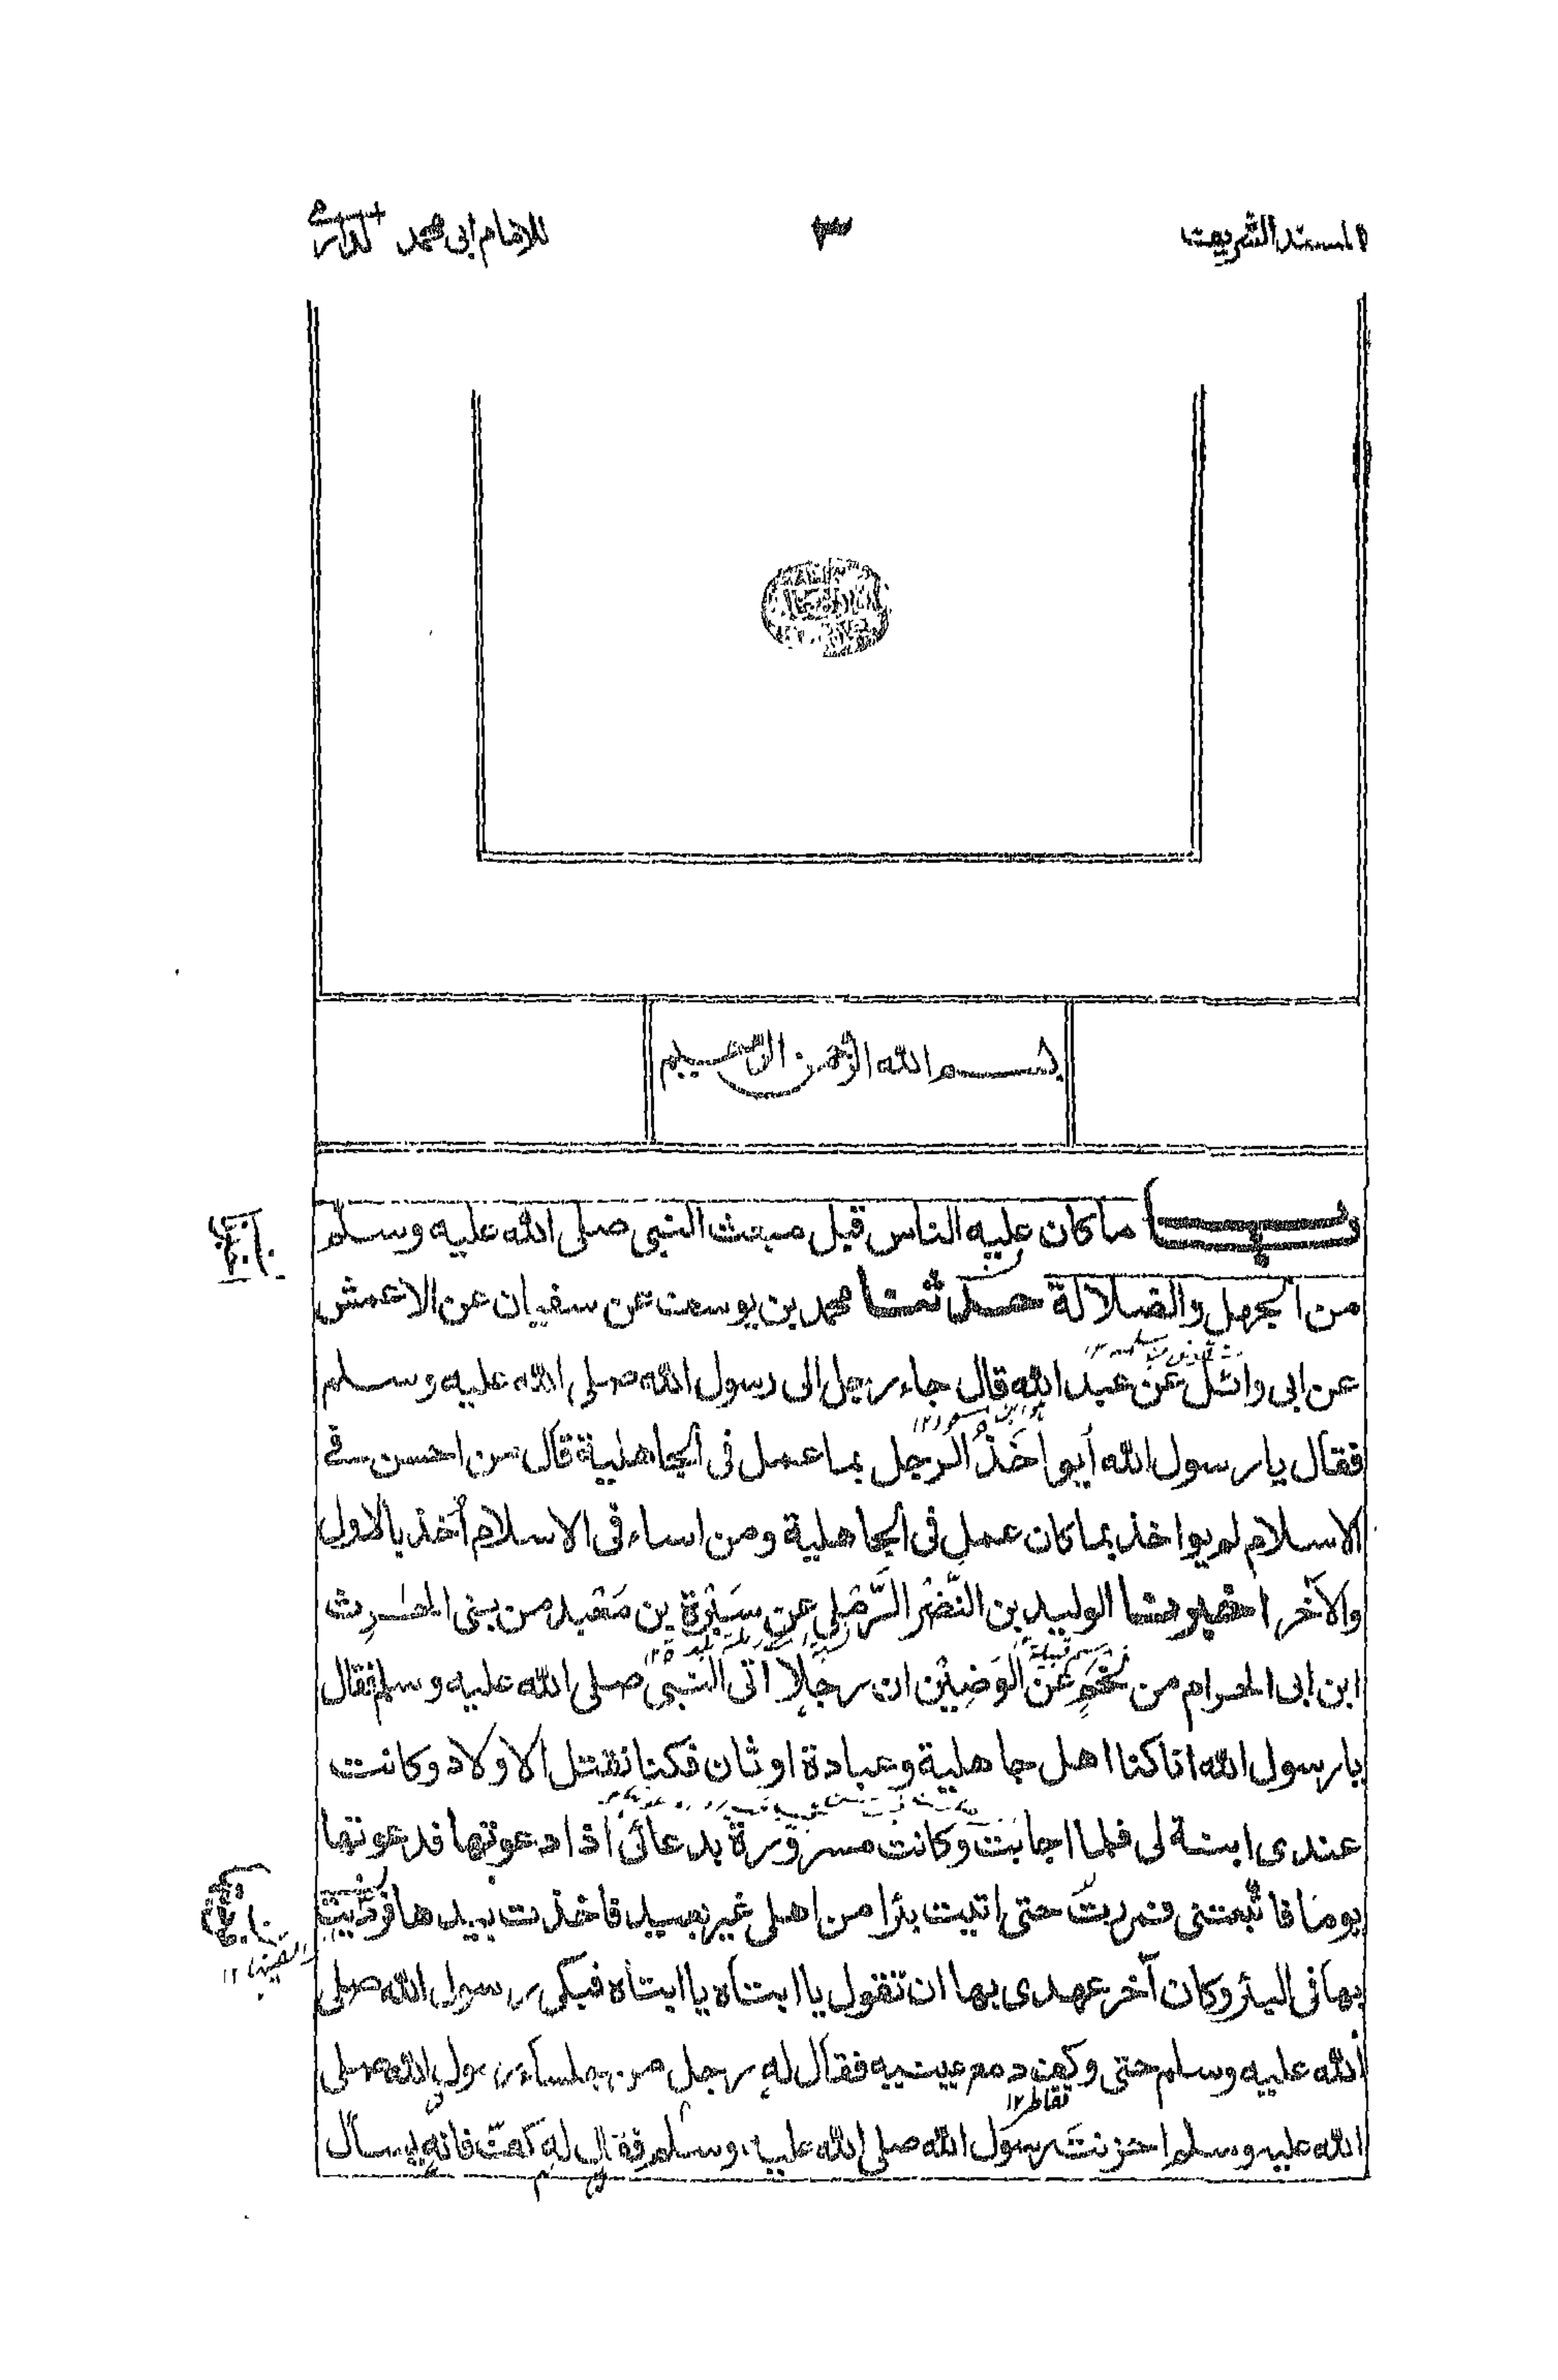 المسند الشريف ٣ للامام ابى محمد الدارمى
بسم الله الرحمن الرحيم
باب ما كان عليه الناس قبل مبعث النبى صلى الله عليه وسلم
من الجهل والضلالة حدثنا محمد بن يوسف عن سفيان عن الاعمش
عن ابى وائل عن عبد الله قال جاء رجل الى رسول الله صلى الله عليه وسلم
فقال يا رسول الله أيواخَذُ الرجل بما عمل فى الجاهلية قال من احسن فى
الاسلام لم يواخذ بما كان عمل فى الجاهلية ومن اساء فى الاسلام أخذ بالاول
والآخر اخبرنا الوليد بن النَّضْر الرَّمْلِى عن سَبْرَة بن مَعْبد من بنى الحارث
ابن ابى الحرام من لَخْمٍ عَن الوَضِيْن ان رجلا اتى النبى صلى الله عليه وسلم فقال
يا رسول الله انا كنا اهل جاهلية وعبادة اوثان فكنا نقتل الاولاد وكانت
عندى ابنة لى فلما اجابت وكانت مسرورة بدعائى اذا دعوتها فدعوتها
يوما فاتبعتنى فمررت حتى اتيت بئرا من اهلى غير بعيد فاخذت بيدها فردّيت
بها فى البئر وكان آخر عهدى بها ان تقول يا ابتاه يا ابتاه فبكى رسول الله صلى
الله عليه وسلم حتى وكف دمع عينيه فقال له رجل من جلساء رسول الله صلى
تقاطر ١٢
الله عليه وسلم احزنت رسول الله صلى الله عليه وسلم فقال له كف فانه يسأل